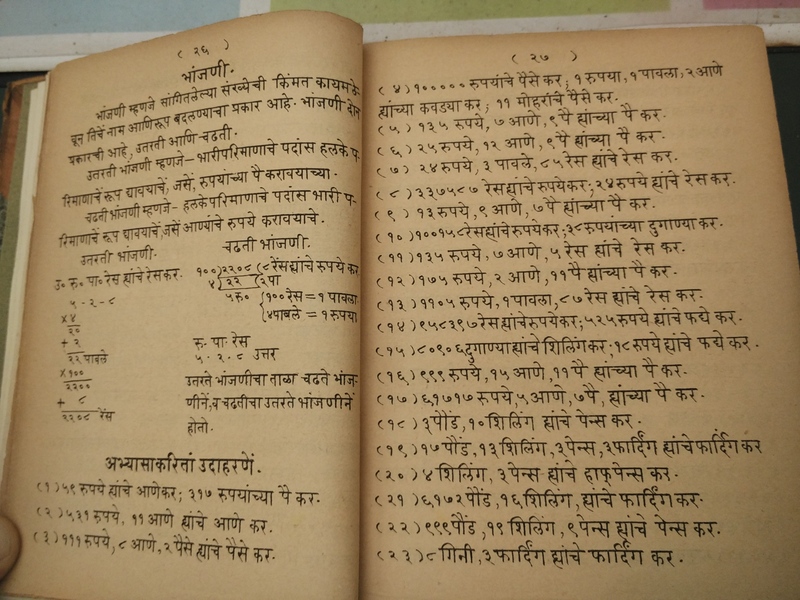 ( २६ )
भांजणी.
भांजणी म्हणजे सांगितलेल्या संख्येची किंमत कायम ठे-
वून तिचें नाम आणि रूप बदलण्याचा प्रकार आहे. भांजणी दोन
प्रकारची आहे, उतरती आणि-चढती.
उतरती भांजणी म्हणजे- भारी परिमाणाचे पदांस हलके प-
रिमाणाचें रूप द्यावयाचें, जसें, रुपयांच्या पै करावयाच्या.
चढती भांजणी म्हणजे- हलके परिमाणाचे पदांस भारी प-
रिमाणाचें रूप द्यावयाचें, जसें आण्यांचे रुपये करावयाचे.
उतरती भांजणी.
उ० रु० पा० रेस ह्यांचे रेस कर.
५ - २ - ८
× ४
२०
+ २
२२ पावले
× १००
२२००
+ ८
२२०८ रेंस
चढती भांजणी.
१००)२२०८(८ रेंस ह्यांचे रुपये कर
४)२२(२पा
५रु० {१०० रेस = १ पावला
{४पाबले = १ रुपया
रु. पा. रेस
५. २. ८ उत्तर
उतरते भांजणीचा ताळा चढते भांज-
णीनें, व चढतीचा उतरते भांजणीनें
होतो.
अभ्यासाकरितां उदाहरणें.
(१) ५९ रुपये ह्यांचे आणे कर; ३१७ रुपयांच्या पै कर.
(२) ५३१ रुपये, ११ आणे ह्यांचे आणे कर.
(३) १११ रुपये, ८ आणे, २ पैसे ह्यांचे पैसे कर.
( २७ )
(४) १००००० रुपयांचे पैसे कर; १ रुपया, १ पावला, २ आणे
ह्यांच्या कवड्या कर; ११ मोहरांचे पैसे कर.
(५) १३५ रुपये, ७ आणे, ९ पै ह्यांच्या पै कर.
(६) २५ रुपये, १२ आणे, ९ पै ह्यांच्या पै कर.
(७) २४ रुपये, ३ पावले, ८५ रेस ह्यांचे रेस कर.
(८) ३३७५८७ रेस ह्यांचे रुपये कर; २४ रुपये ह्यांचे रेस कर.
(९) १३ रुपये, ९ आणे, ७ पै ह्यांच्या पै कर.
(१०) १००१५८ रेस ह्यांचे रुपये कर; ३८ रुपयांच्या दुगाण्या कर.
(११) १३५ रुपये, ७ आणे, ५ रेस ह्यांचे रेस कर.
(१२) १७५ रुपये, २ आणे, ११ पै ह्यांच्या पै कर.
(१३) ११०५ रुपये, १ पावला, ८७ रेस ह्यांचे रेस कर.
(१४) ९५८३९७ रेस ह्यांचे रुपये कर; ५२५ रुपये ह्यांचे फये कर.
(१५) ८०९०६ दुगाण्या ह्यांचे शिलिंग कर; १८ रुपये ह्यांचे फये कर.
(१६) ९९९ रुपये, १५ आणे, ११ पै ह्यांच्या पै कर.
(१७) ६१७१७ रुपये, ५ आणे, ७ पै, ह्यांच्या पै कर.
(१८) ३ पौंड, १० शिलिंग ह्यांचे पेन्स कर.
(१९) १७ पौंड, १३ शिलिंग, ३ पेन्स, ३ फार्दिंग ह्यांचे फार्दिंग कर
(२०) ४ शिलिंग, ३ पेन्स ह्यांचे हाफ्पेन्स कर.
(२१) ६१७२ पौंड, १६ शिलिंग, ह्यांचे फार्दिंग कर.
(२२) ९९९ पौंड, १९ शिलिंग, ९ पेन्स ह्यांचे पेन्स कर.
(२३) ८ गिनी, ३ फार्दिंग ह्यांचे फार्दिंग कर.